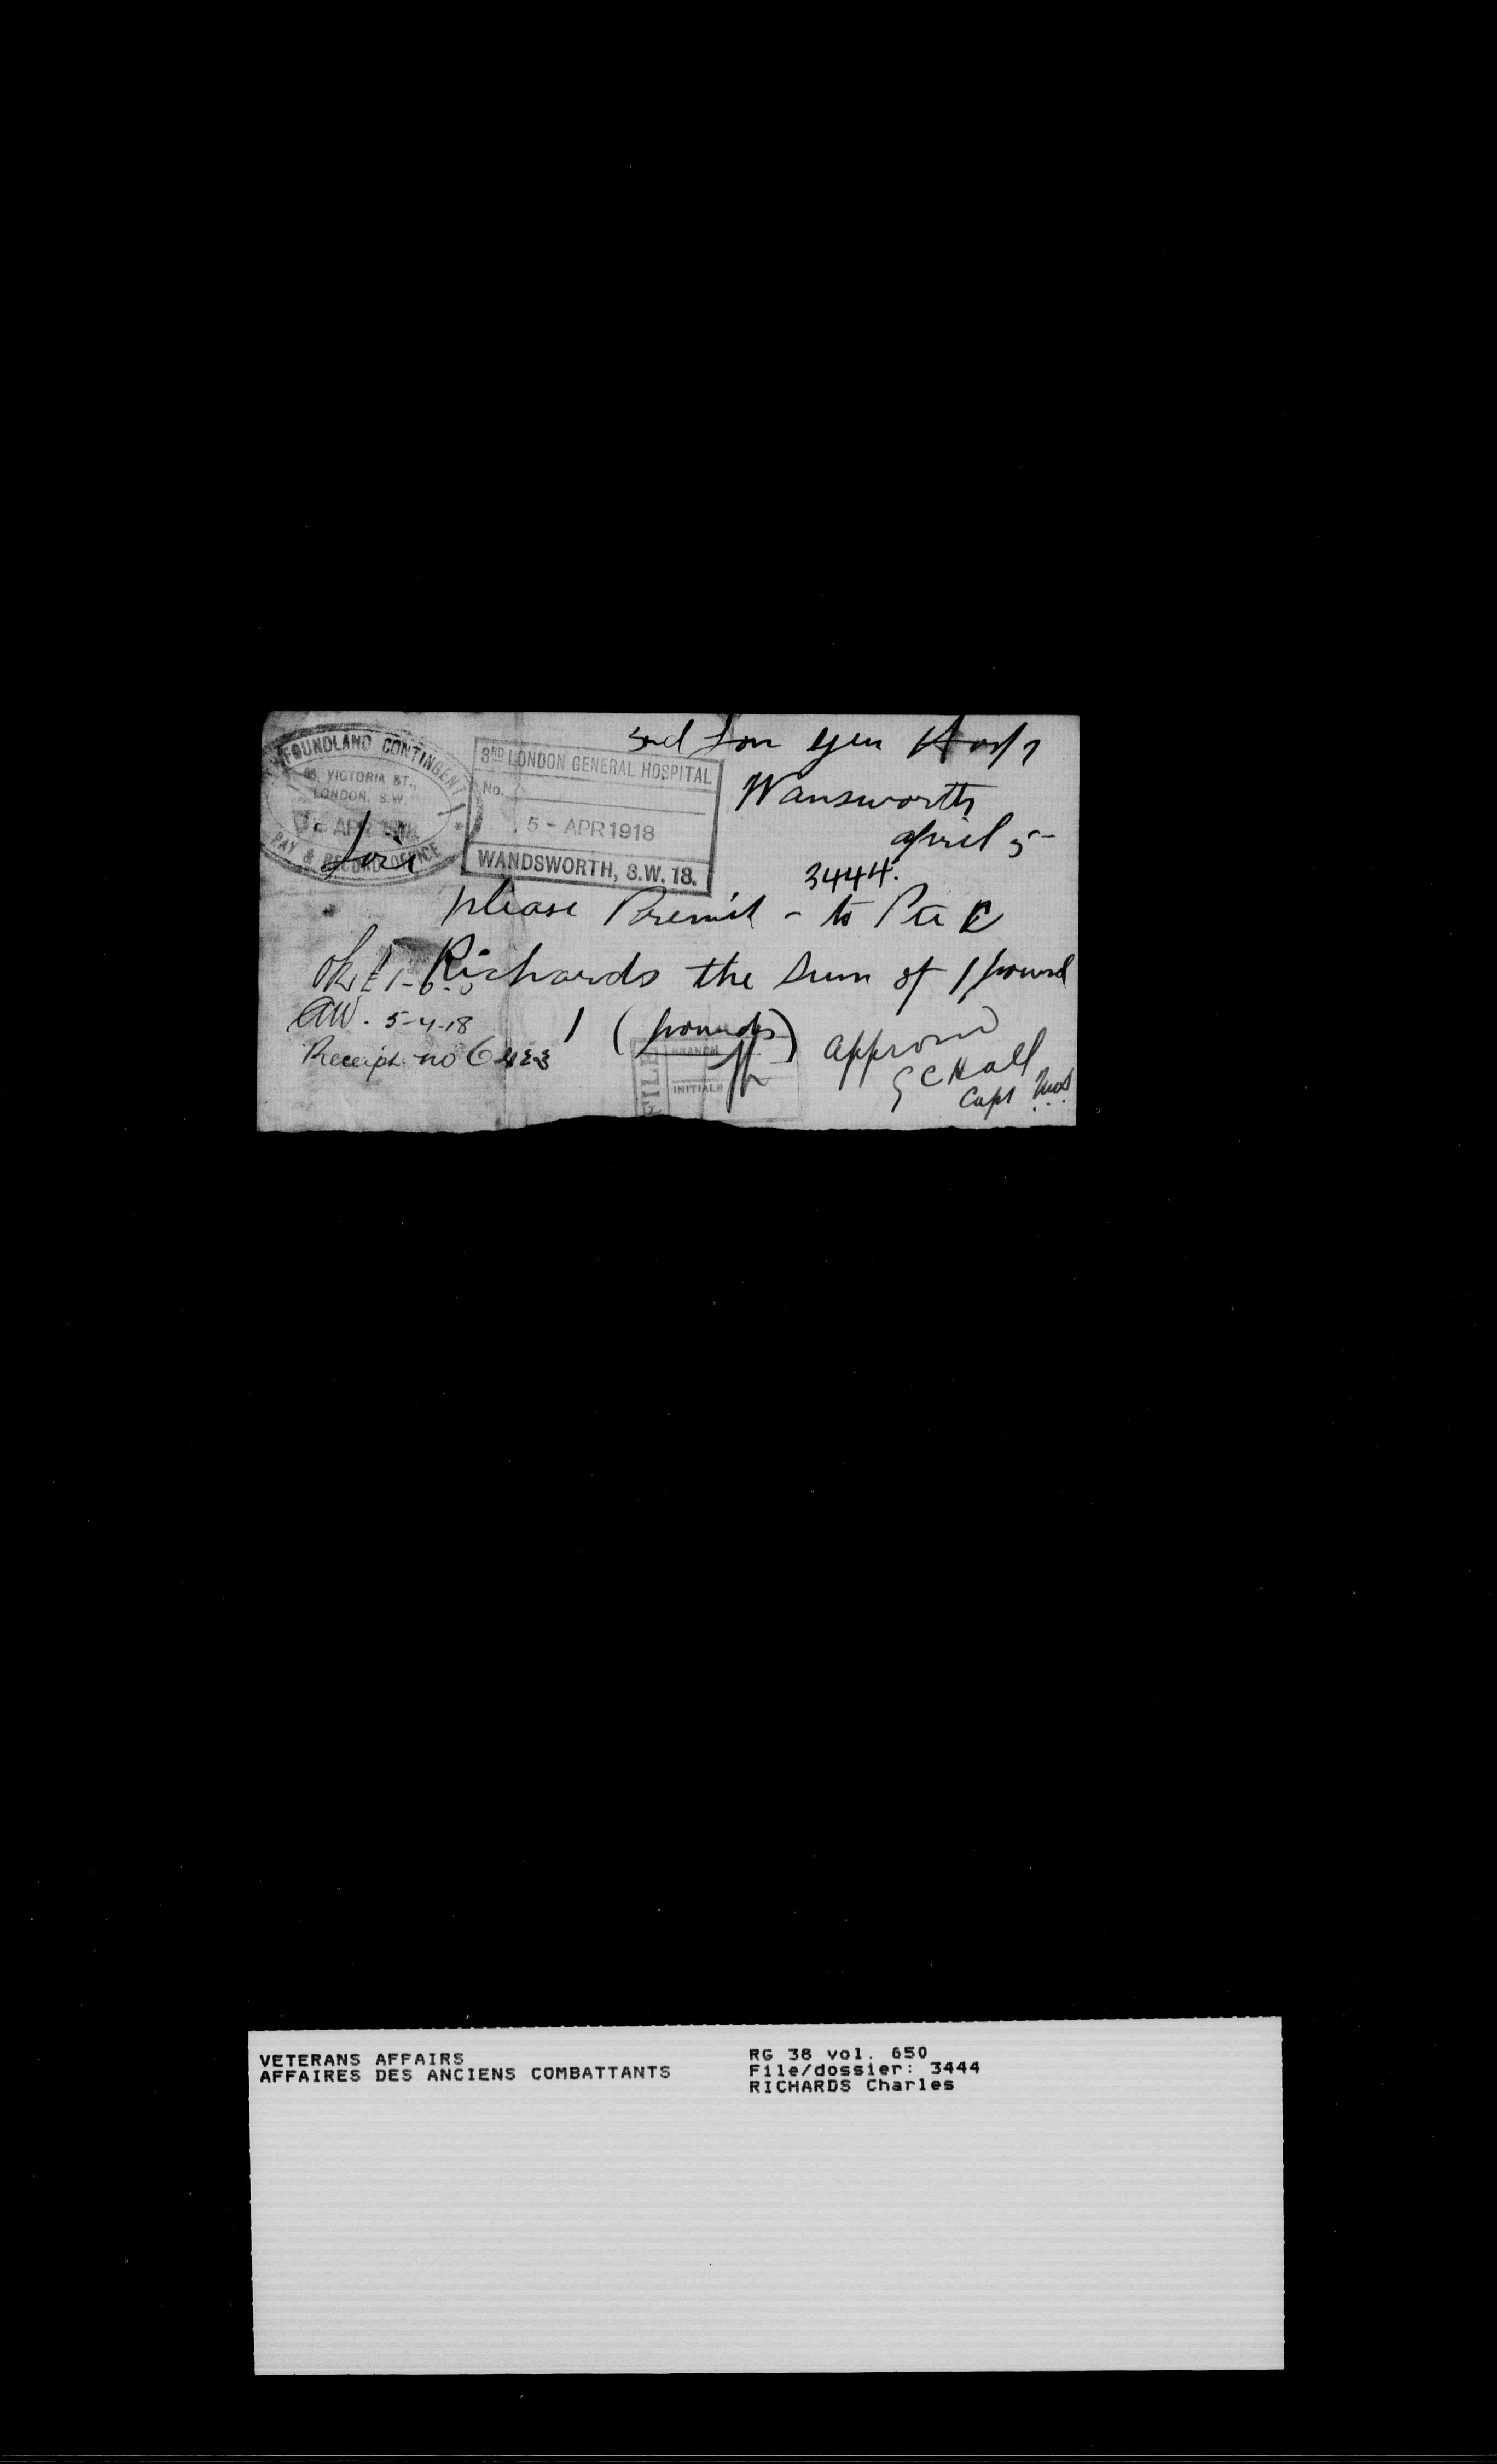 FOUNDLAND CONTINGENT
VICTORIA ST.,
LONDON, S.W.
APR 1918
PAY & RECORD OFFICE
3RD LONDON GENERAL HOSPITAL
No.
5 - APR 1918
WANDSWORTH, S.W. 18.
3rd Lon Gen Hosp
Wansworth
april 5
Sir
3444.
please Remit - to Pte C
Richards the Sum of 1 pound
1 (pounds)
Ok £1-0-0
5-4-18
Receipt no 6
approved
G C Hall
Capt
FILE
BRANCH
INITIALS
VETERANS AFFAIRS
AFFAIRES DES ANCIENS COMBATTANTS
RG 38 vol. 650
File/dossier: 3444
RICHARDS Charles